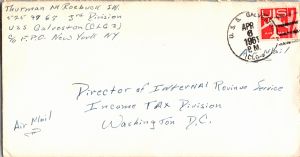 Thurman M. Roebuck SN.
525 99 65 3rd Division
U.S.S Galveston (CLG3)
% F.P.O. New York NY
U.S.S. GAL
APR
6
1961
P.M.
(CLG-
Air Mail
Director of Internal Revenue Service
Income TAX Division
Washington D.C.
Air Mail